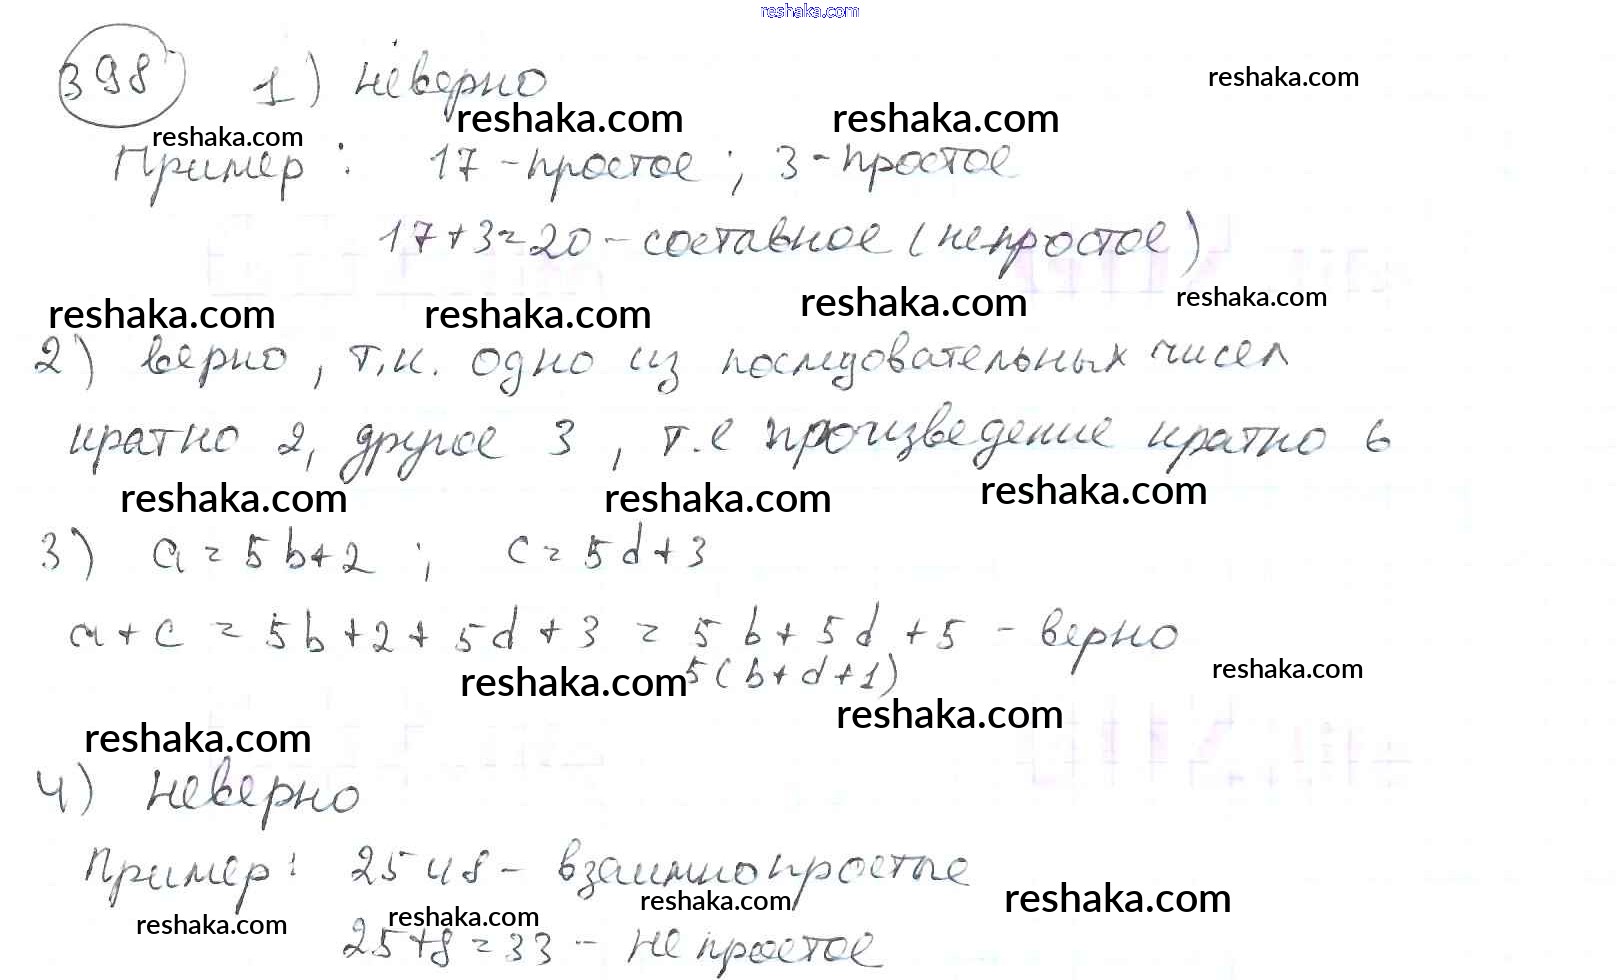 reshaka.com
398 1) неверно reshaka.com
reshaka.com reshaka.com
reshaka.com
Пример: 17 - простое; 3 - простое
17+3=20 - составное (непростое)
reshaka.com reshaka.com reshaka.com reshaka.com
2) верно, т.к. одно из последовательных чисел
кратно 2, другое 3, т.е произведение кратно 6
reshaka.com reshaka.com reshaka.com
3) a = 5b+2 ; c = 5d+3
a + c = 5b + 2 + 5d + 3 = 5b + 5d + 5 - верно
5(b+d+1)
reshaka.com reshaka.com
reshaka.com reshaka.com
4) неверно
Пример: 25 и 8 - взаимно простые
reshaka.com reshaka.com reshaka.com reshaka.com
25+8=33 - не простое